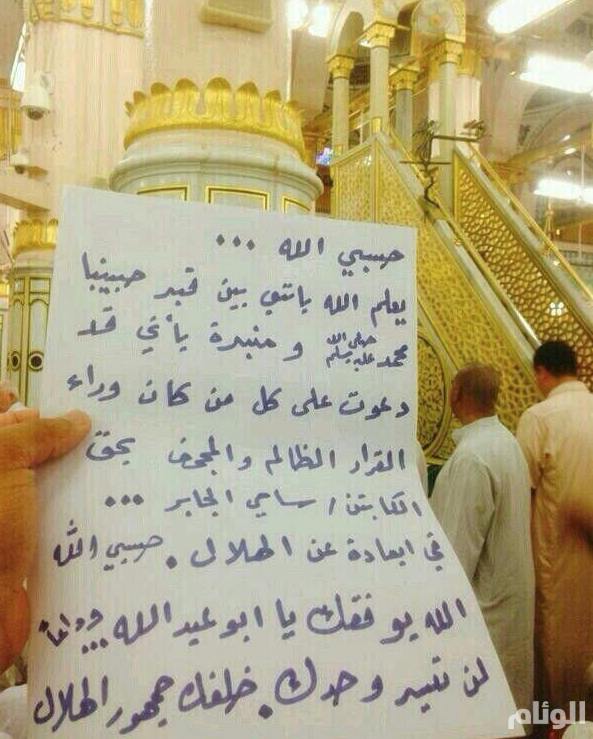 حسبي الله ...
يعلم الله بانني بين قبر حبيبنا
محمد صلى الله عليه وسلم و منبرة بأني قد
دعوت على كل من كان وراء
القرار الظالم والمجحف بحق
الكابتن / سامي الجابر ...
في ابعادة عن الهلال . حسبي الله
الله يوفقك يا ابو عبدالله ... وداعاً
لن تسير وحدك . خلفك جمهور الهلال
الوئام